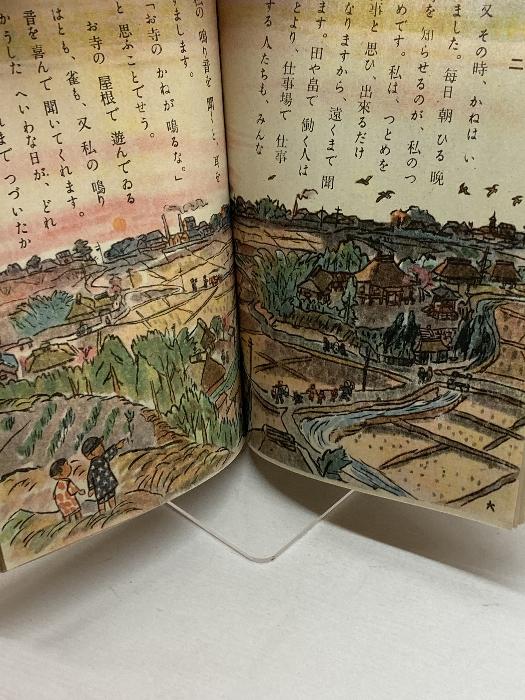 二
又 その時、かねは い
ました。毎日 朝 ひる 晩
を 知らせるのが、私のつ
めです。私は、つとめを
事と 思ひ、出來るだけ
なりますから、遠くまで 聞
ます。田や畠で 働く人は
とより、仕事場で 仕事
する人たちも、みんな
六
の 鳴り音を 聞くと、耳を
します。
「お寺の かねが 鳴るな。」
と 思ふことでせう。
お寺の 屋根で 遊んでゐる
はとも、雀も、又 私の 鳴り
音を喜んで 聞いてくれます。
かうした へいわな日が、どれ
まで つづいたか